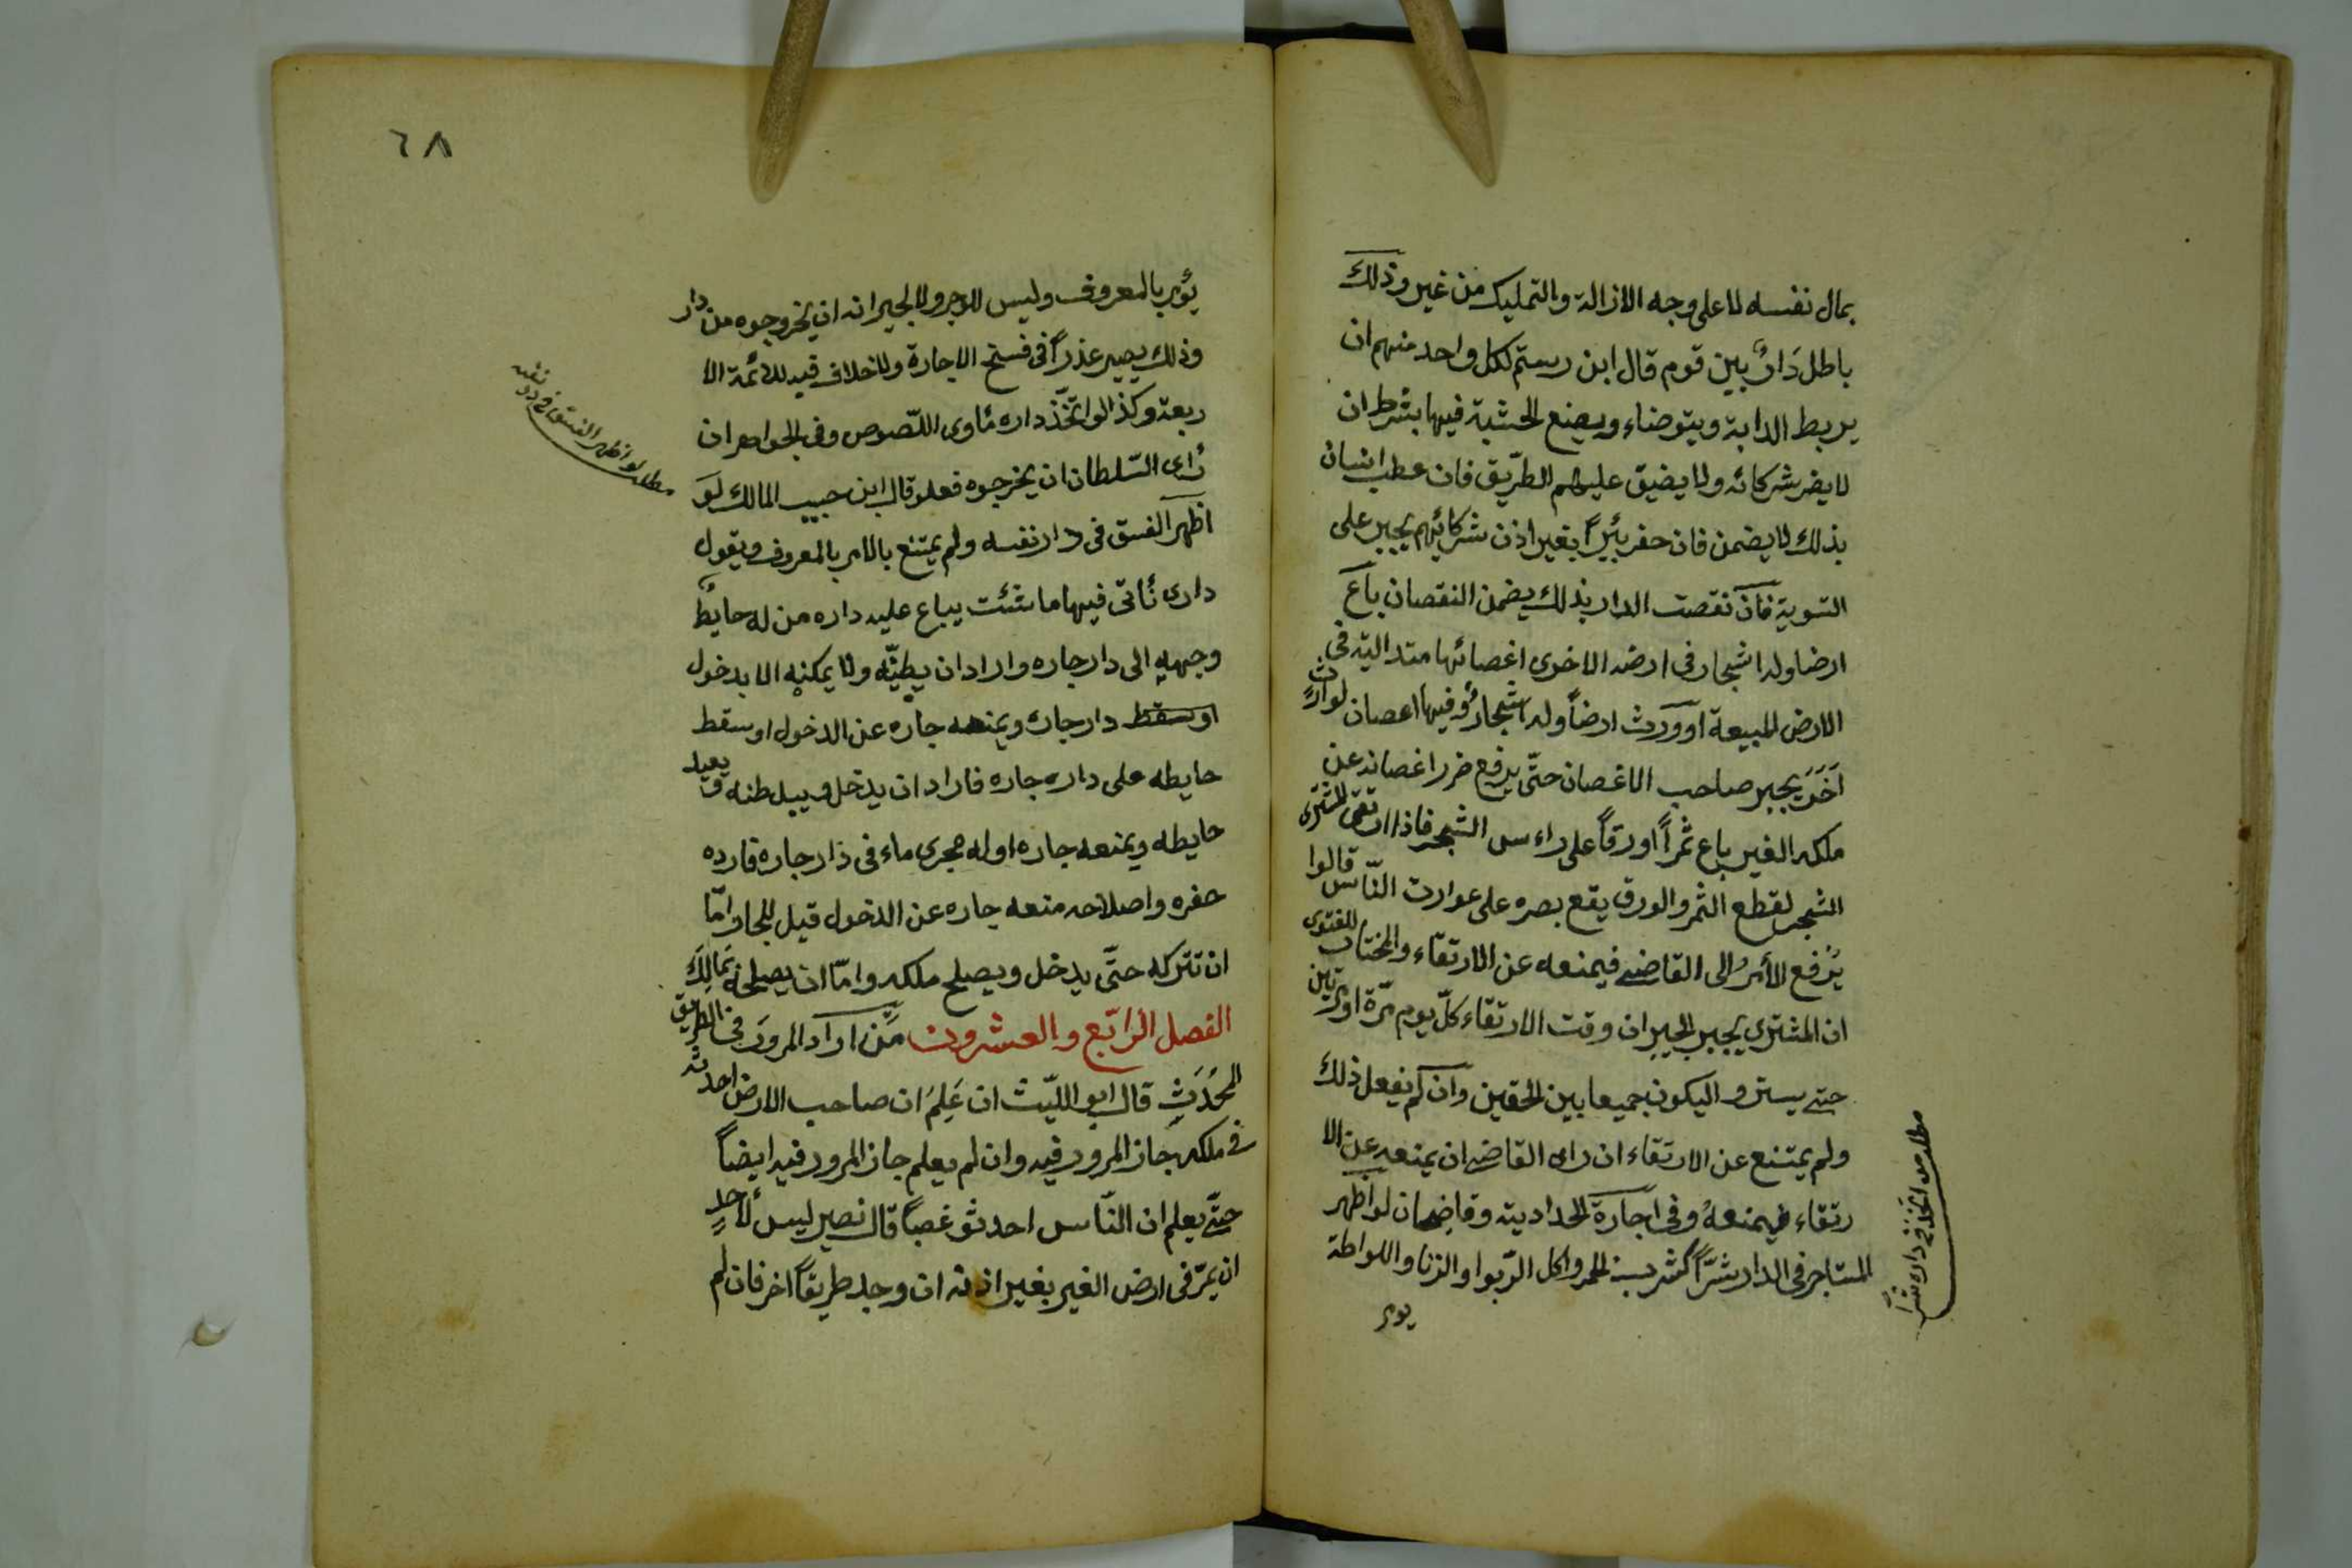 بمال نفسه لا على وجه الازالة والتمليك من غير وذلك
باطل دَارٌ بين قوم قال ابن رستم لكل واحد منهم ان
يربط الدابة ويتوضاء ويصنع الخشبة فيها بشرط ان
لا يضر شركائه ولا يضيق عليهم الطريق فان عطب انسان
بذلك لا يضمن فان حفر بئيراً بغير اذن شركائهم يجبر على
التسوية فان نقصت الدار بذلك يضمن النقصان باع
ارضا وله اشجار فى ارضه الاخرى اغصائها متدالية فى
الارض المبيعة او ورث ارضاً وله اشجارٌ وفيها اعصان لوارثٍ
آخَرَ يجبر صاحب الاغصان حتّى يرفع ضرر اغصانه عن
ملكه الغير باع ثمراً او رقاً على راءس الشجر فاذا ارتقى المشترى
الشجر لقطع الثمر والورق يقع بصره على عوارت النّاس قالوا
يُرفع الأمرُ الى القاضى فيمنعه عن الارتقاء والمختار للفتوى
ان المشترى يجبر الجيران وقت الارتقاء كلّ يوم مرّة او مرتين
حتى يستروا ليكون جميعا بين الحقين وان لم يفعل ذلك
ولم يمتنع عن الارتقاء ان راى القاضى ان يمنعه عن الا
رتقاء فيمنعهُ وفى اجارة الحدادية وقاضيحان لو اظهر
المستاجر فى الدار شرّاً كشرب الخمر واكل الرّبوا والزنا واللواطة
يومر
مطلب من اتخذ فى داره شراً
٦٨
يؤمر بالمعروف وليس للاجر ولا لجيرانه ان يخروجوه من دار
وذلك يصير عذراً فى فسخ الاجارة ولا خلاف فيه للائمة الا
ربعة وكذا لو اتّخذ داره مأوى اللّصوص وفى الجواهر ان
رأى السّلطان ان يخرجوه فعل وقال ابن حبيب المالك لَو
اظهر الفسق فى دار نفسه ولم يمتنع بالامر بالمعروف ويقول
دارى نأتى فيها ما شئت يباع عليه داره من له حايطٌ
وجهه الى دار جاره واراد ان يطيّنه ولا يمكنه الا بدخول
او سقط دار جاره ويمنعه جاره عن الدخول او سقط
حايطه على داره جاره فاراد ان يدخل و يبل طنه و يعيد
حايطه ويمنعه جاره او له مجرى ماء فى دار جاره فارده
حفره واصلاحه منعه جاره عن الدخول قيل للجار امّا
ان تتركه حتّى يدخل ويصلح ملكه وامّا ان يصلحه بمالك
الفصل الرّابع والعشرون مَن اراد المرورَ فى الطريق
المحُدَثِ قال ابو اللّيث ان عَلِمَ ان صاحب الارض احدثه
فى ملكه جاز المرور فيه وان لم يعلم جاز المرور فيه ايضاً
حتّى يعلم ان النّاس احدثو غصباً قال نصير ليس لأحدٍ
ان يمرّ فى ارض الغير بغير اذنه ان وجد طريقاً اخر فان لم
مطلب لو اظهر الفسق فى دار نفسه